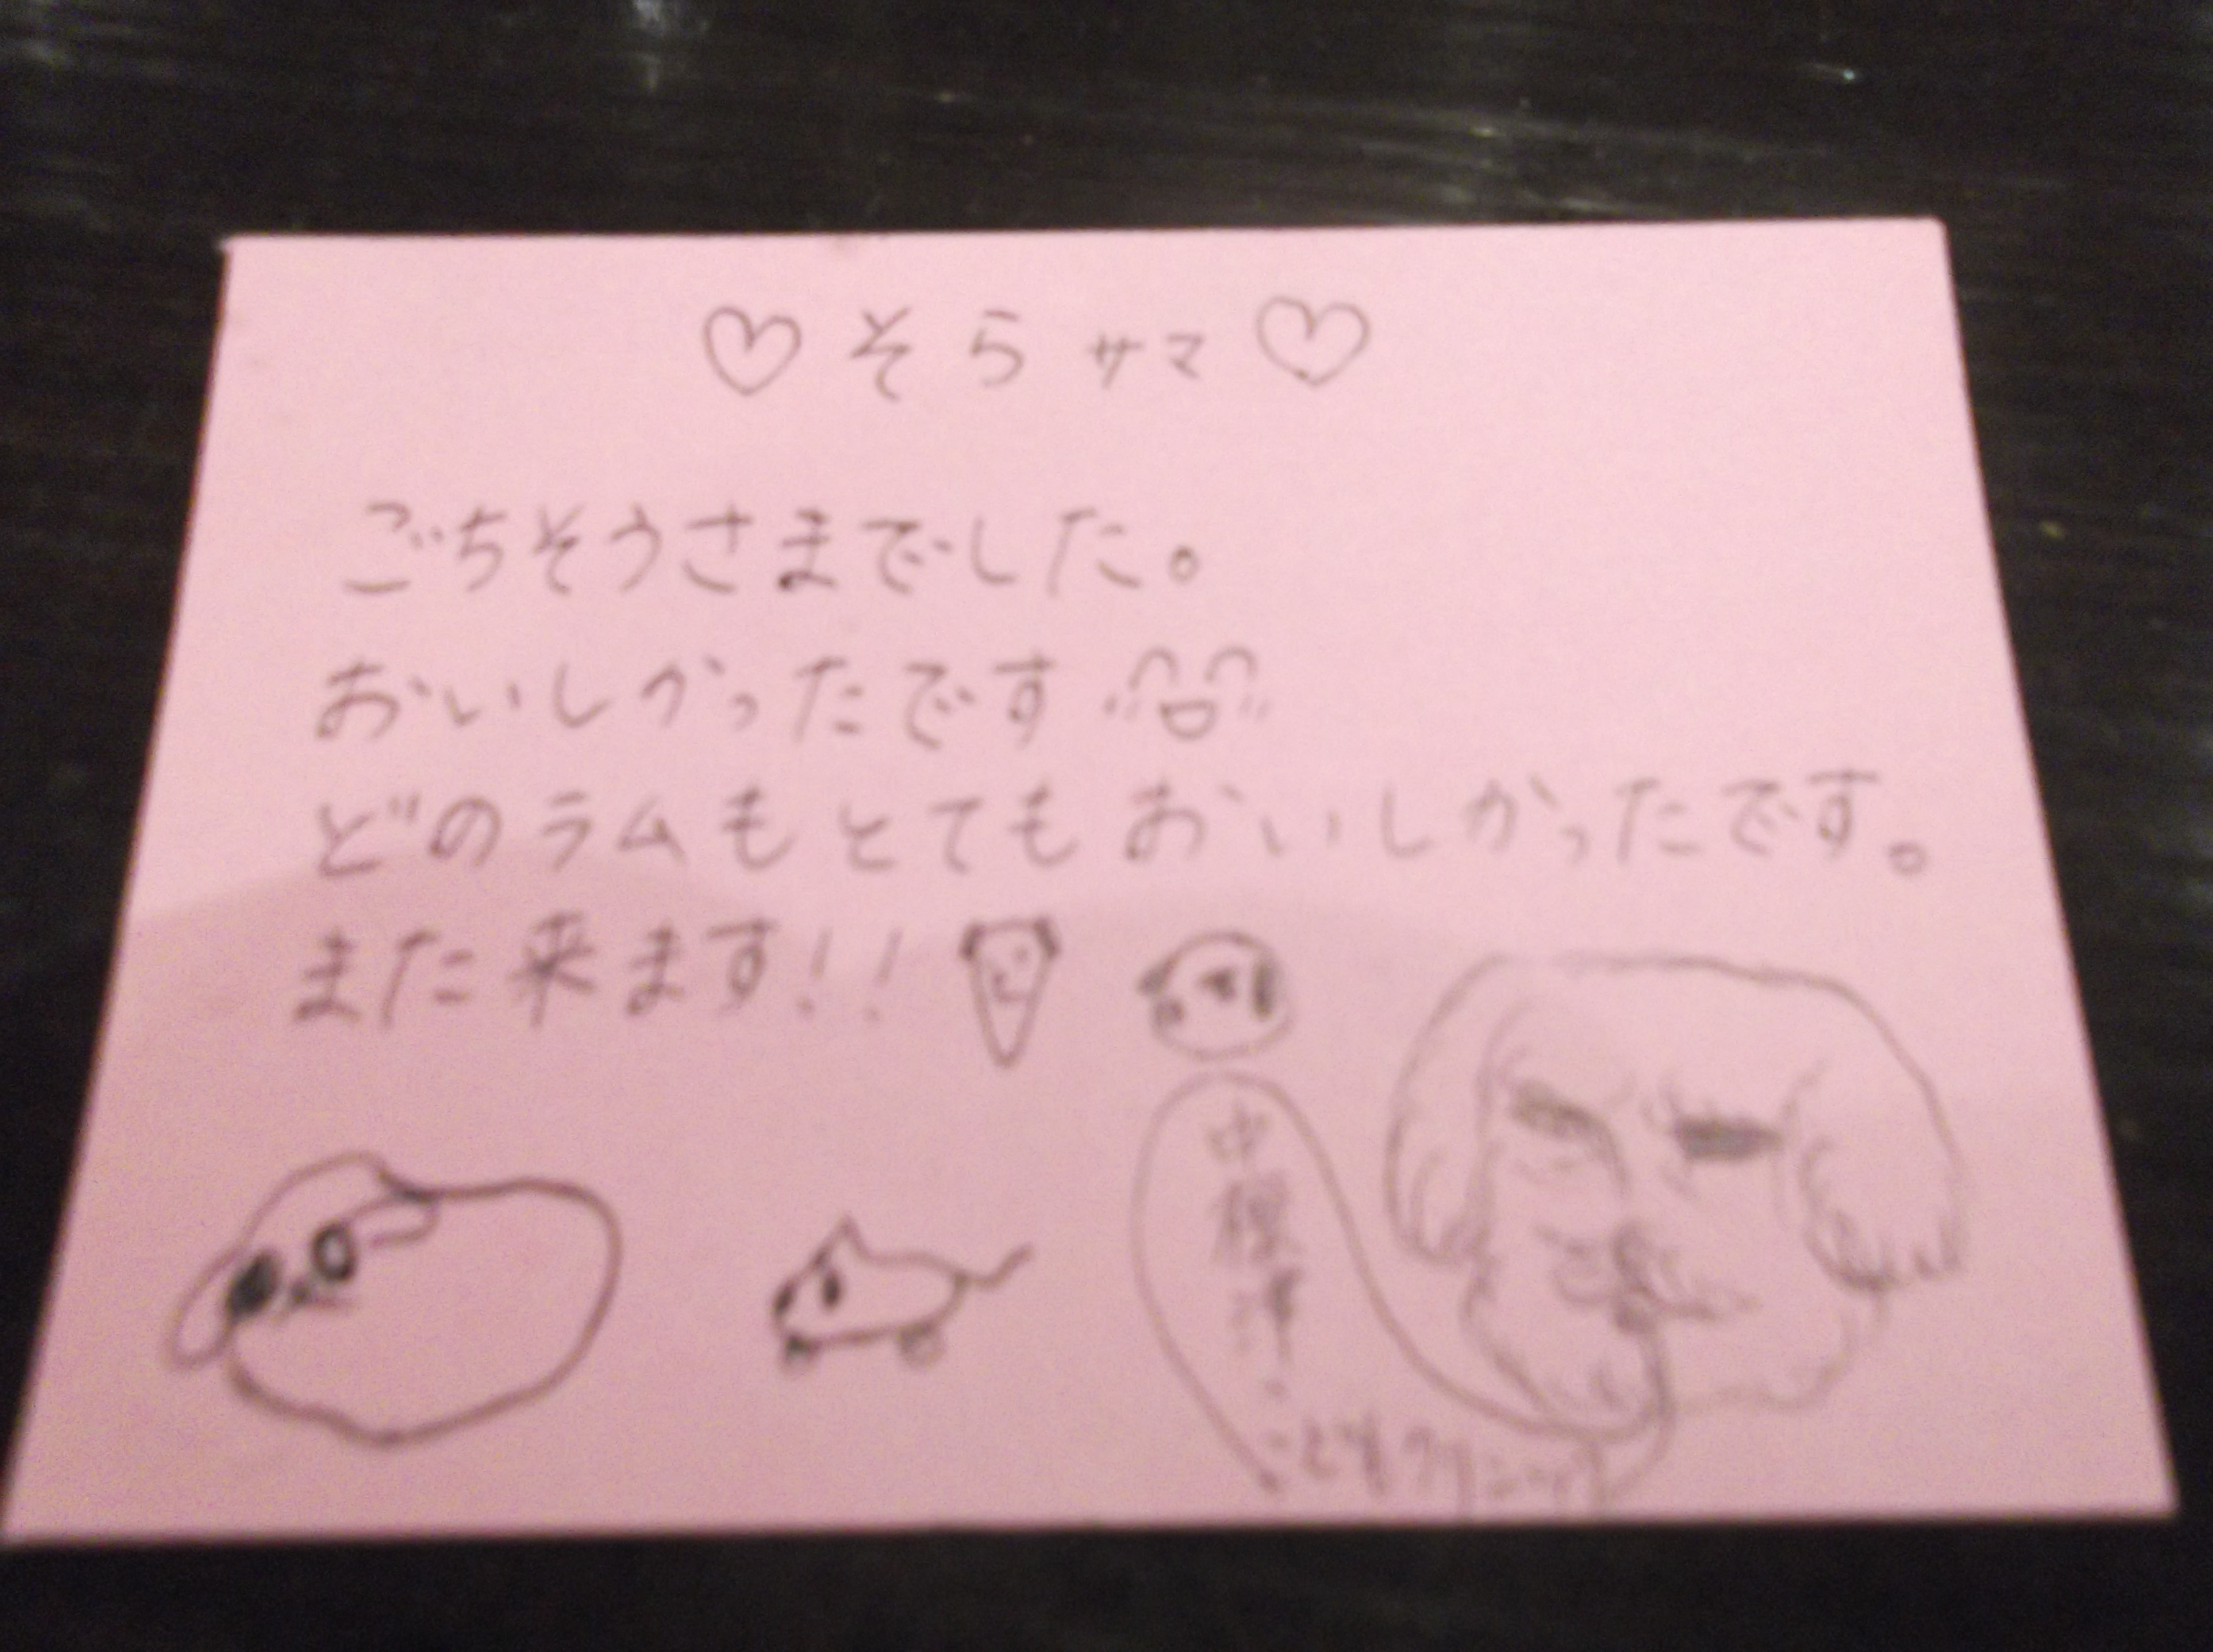 ♡そらサマ♡
ごちそうさまでした。
おいしかったです
どのラムもとてもおいしかったです。
また来ます!!
中標津